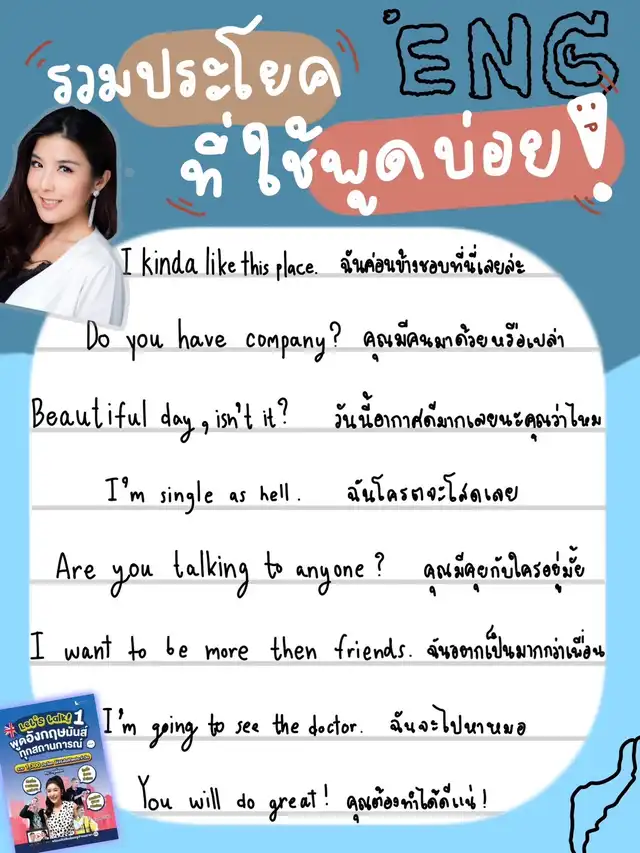 รวมประโยค ENG
ที่ใช้พูดบ่อย!
I kinda like this place. ฉันค่อนข้างชอบที่นี่เลยล่ะ
Do you have company? คุณมีคนมาด้วยหรือเปล่า
Beautiful day, isn't it? วันนี้อากาศดีมากเลยนะคุณว่าไหม
I'm single as hell. ฉันโครตจะโสดเลย
Are you talking to anyone? คุณมีคุยกับใครอยู่มั้ย
I want to be more then friends. ฉันอยากเป็นมากกว่าเพื่อน
I'm going to see the doctor. ฉันจะไปหาหมอ
You will do great! คุณต้องทำได้ดีแน่!
Let's talk! 1
พูดอังกฤษมันส์
ทุกสถานการณ์